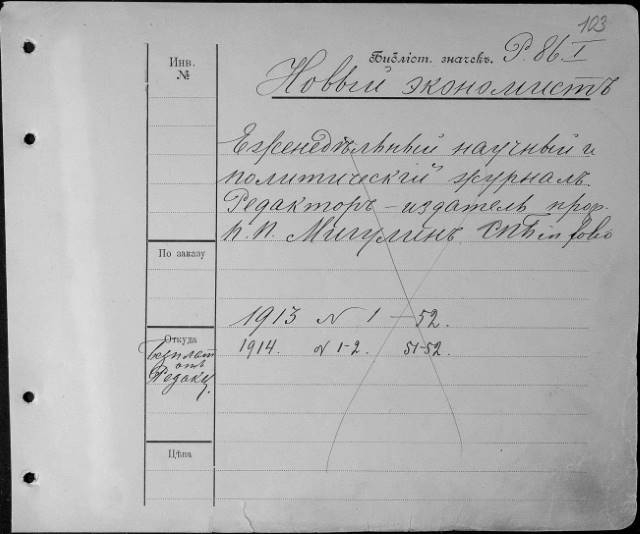 103
Библіот. значекъ. P. 86 I
Инв.
№
Новый экономистъ
Еженедѣльный научный и
политическій журналъ.
Редакторъ – издатель проф.
П. П. Мигулинъ. СПБ in folio
По заказу
1913 N 1 – 52.
Откуда
1914. N 1-2. 51-52.
Безплат
отъ
Редакц.
Цѣна